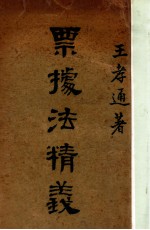 王孝通著
票據法精義